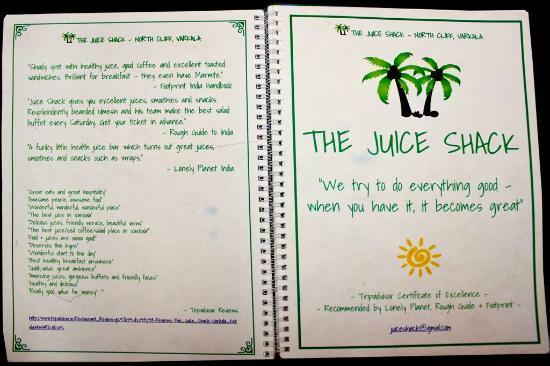 THE JUICE SHACK - NORTH CLIFF, VARKALA
"Shady spot with healthy juice, good coffee and excellent toasted
sandwiches. Brilliant for breakfast - they even have Marmite."
- Footprint India Handbook
"Juice Shack gives you excellent juices, smoothies and snacks.
Resplendently bearded Umesh and his team make the best salad
buffet every Saturday. Get your ticket in advance."
- Rough Guide to India
"A funky little health juice bar which turns out great juices,
smoothies and snacks such as wraps."
- Lonely Planet India
"Great eats and great hospitality"
"Awesome people awesome food"
"Wonderful, wonderful, wonderful place"
"The best juice in Varkala"
"Delicious juices, friendly service, beautiful views"
"The best juice/iced coffee/salad place in Varkala"
"Food + juices are soooo good"
"Deserves the hype"
"Wonderful start to the day"
"Best healthy breakfast anywhere"
"Good value, great ambience"
"Amazing juices, gorgeous buffets and friendly faces"
"healthy and delicious"
"Really good value for money"
- Tripadvisor Reviews
THE JUICE SHACK - NORTH CLIFF, VARKALA
THE JUICE SHACK
"We try to do everything good -
when you have it, it becomes great"
- Tripadvisor Certificate of Excellence -
- Recommended by Lonely Planet, Rough Guide + Footprint -
juiceshack@gmail.com